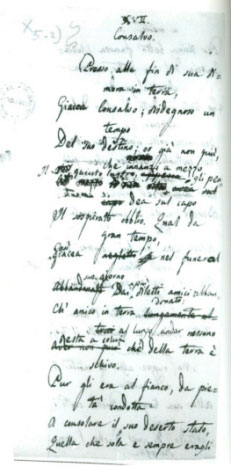 XVII.
Consalvo.
Presso alla fin di sua di-
mora in terra,
Giacea Consalvo; disdegnoso un
tempo
Del suo destino; or già non più,
che a mezzo
Il quinto lustro, gli pen-
dea sul capo
Il sospirato obblio. Qual da
gran tempo,
Così giacea nel funeral
suo giorno
Dai più diletti amici abban-
donato:
Ch' amico in terra
al lungo andar nessuno
Resta a colui che della terra è
schivo.
Pur gli era al fianco, da pie-
tà condotta
A consolare il suo deserto stato,
Quella che sola e sempre eragli